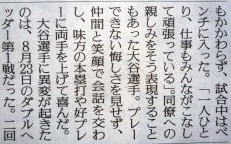 もかかわらず、試合中はベ
ンチに入った。「一人ひと
り、仕事もみんながこなし
て頑張っている」。同僚への
親しみをそう表現すること
もあった大谷選手。プレー
できない悔しさを見せず、
仲間と笑顔で会話を交わ
し、味方の本塁打や好プレ
ーに両手を上げて喜んだ。
大谷選手に異変が起きた
のは、8月23日のダブルヘ
ッダー第1戦だった。二回